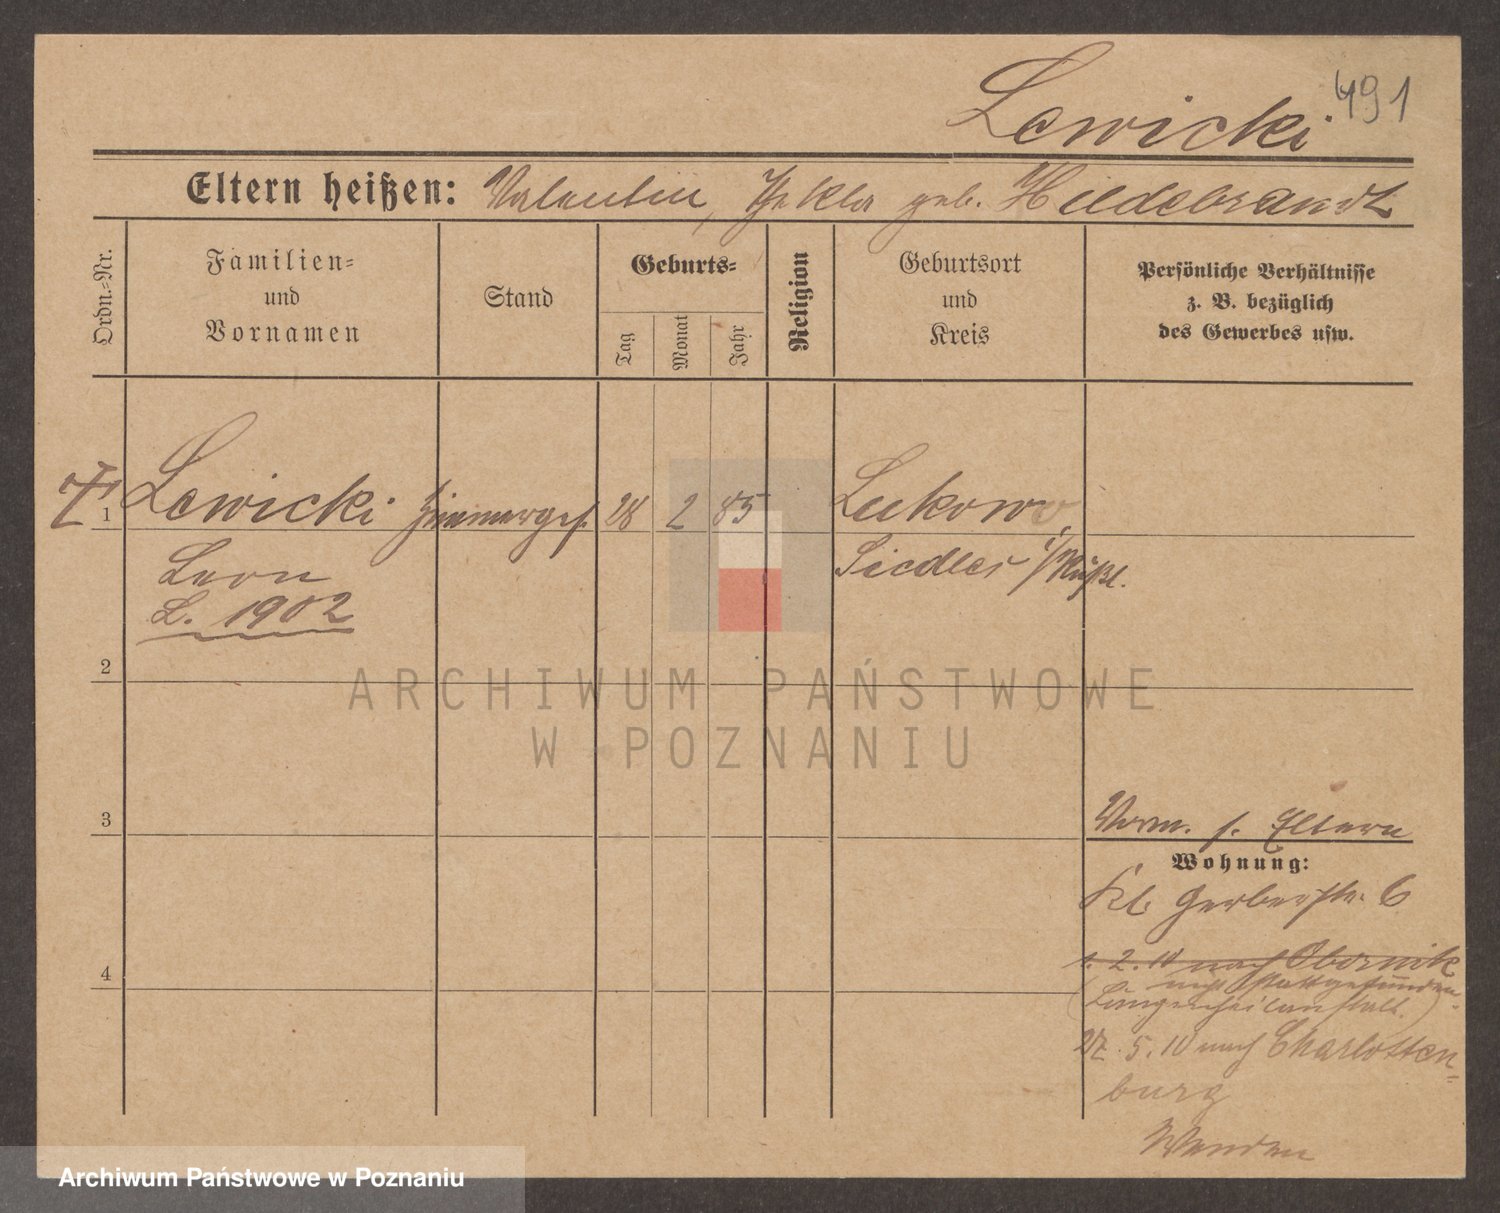 Lewicki
491
Eltern heißen: Valentin, Thekla geb. Hildebrandt
Ordn.-Nr.
Familien-
und
Vornamen
Stand
Geburts-
Tag
Monat
Jahr
Religion
Geburtsort
und
Kreis
Persönliche Verhältnisse
z. B. bezüglich
des Gewerbes usw.
1 Lewicki Zimmerges. 28 2 85 Lukowo
Siedlec i/Rußl.
Leon
L. 1902
2
3
4
Vorm. s. Eltern
Wohnung:
Kl. Gerberstr. 6
1. 2. 10 nach Obornik
nicht stattgefunden
(Lungenheilanstalt.)
27. 5. 10 nach Charlotten-
burg
Wenden
ARCHIWUM PAŃSTWOWE
W POZNANIU
Archiwum Państwowe w Poznaniu